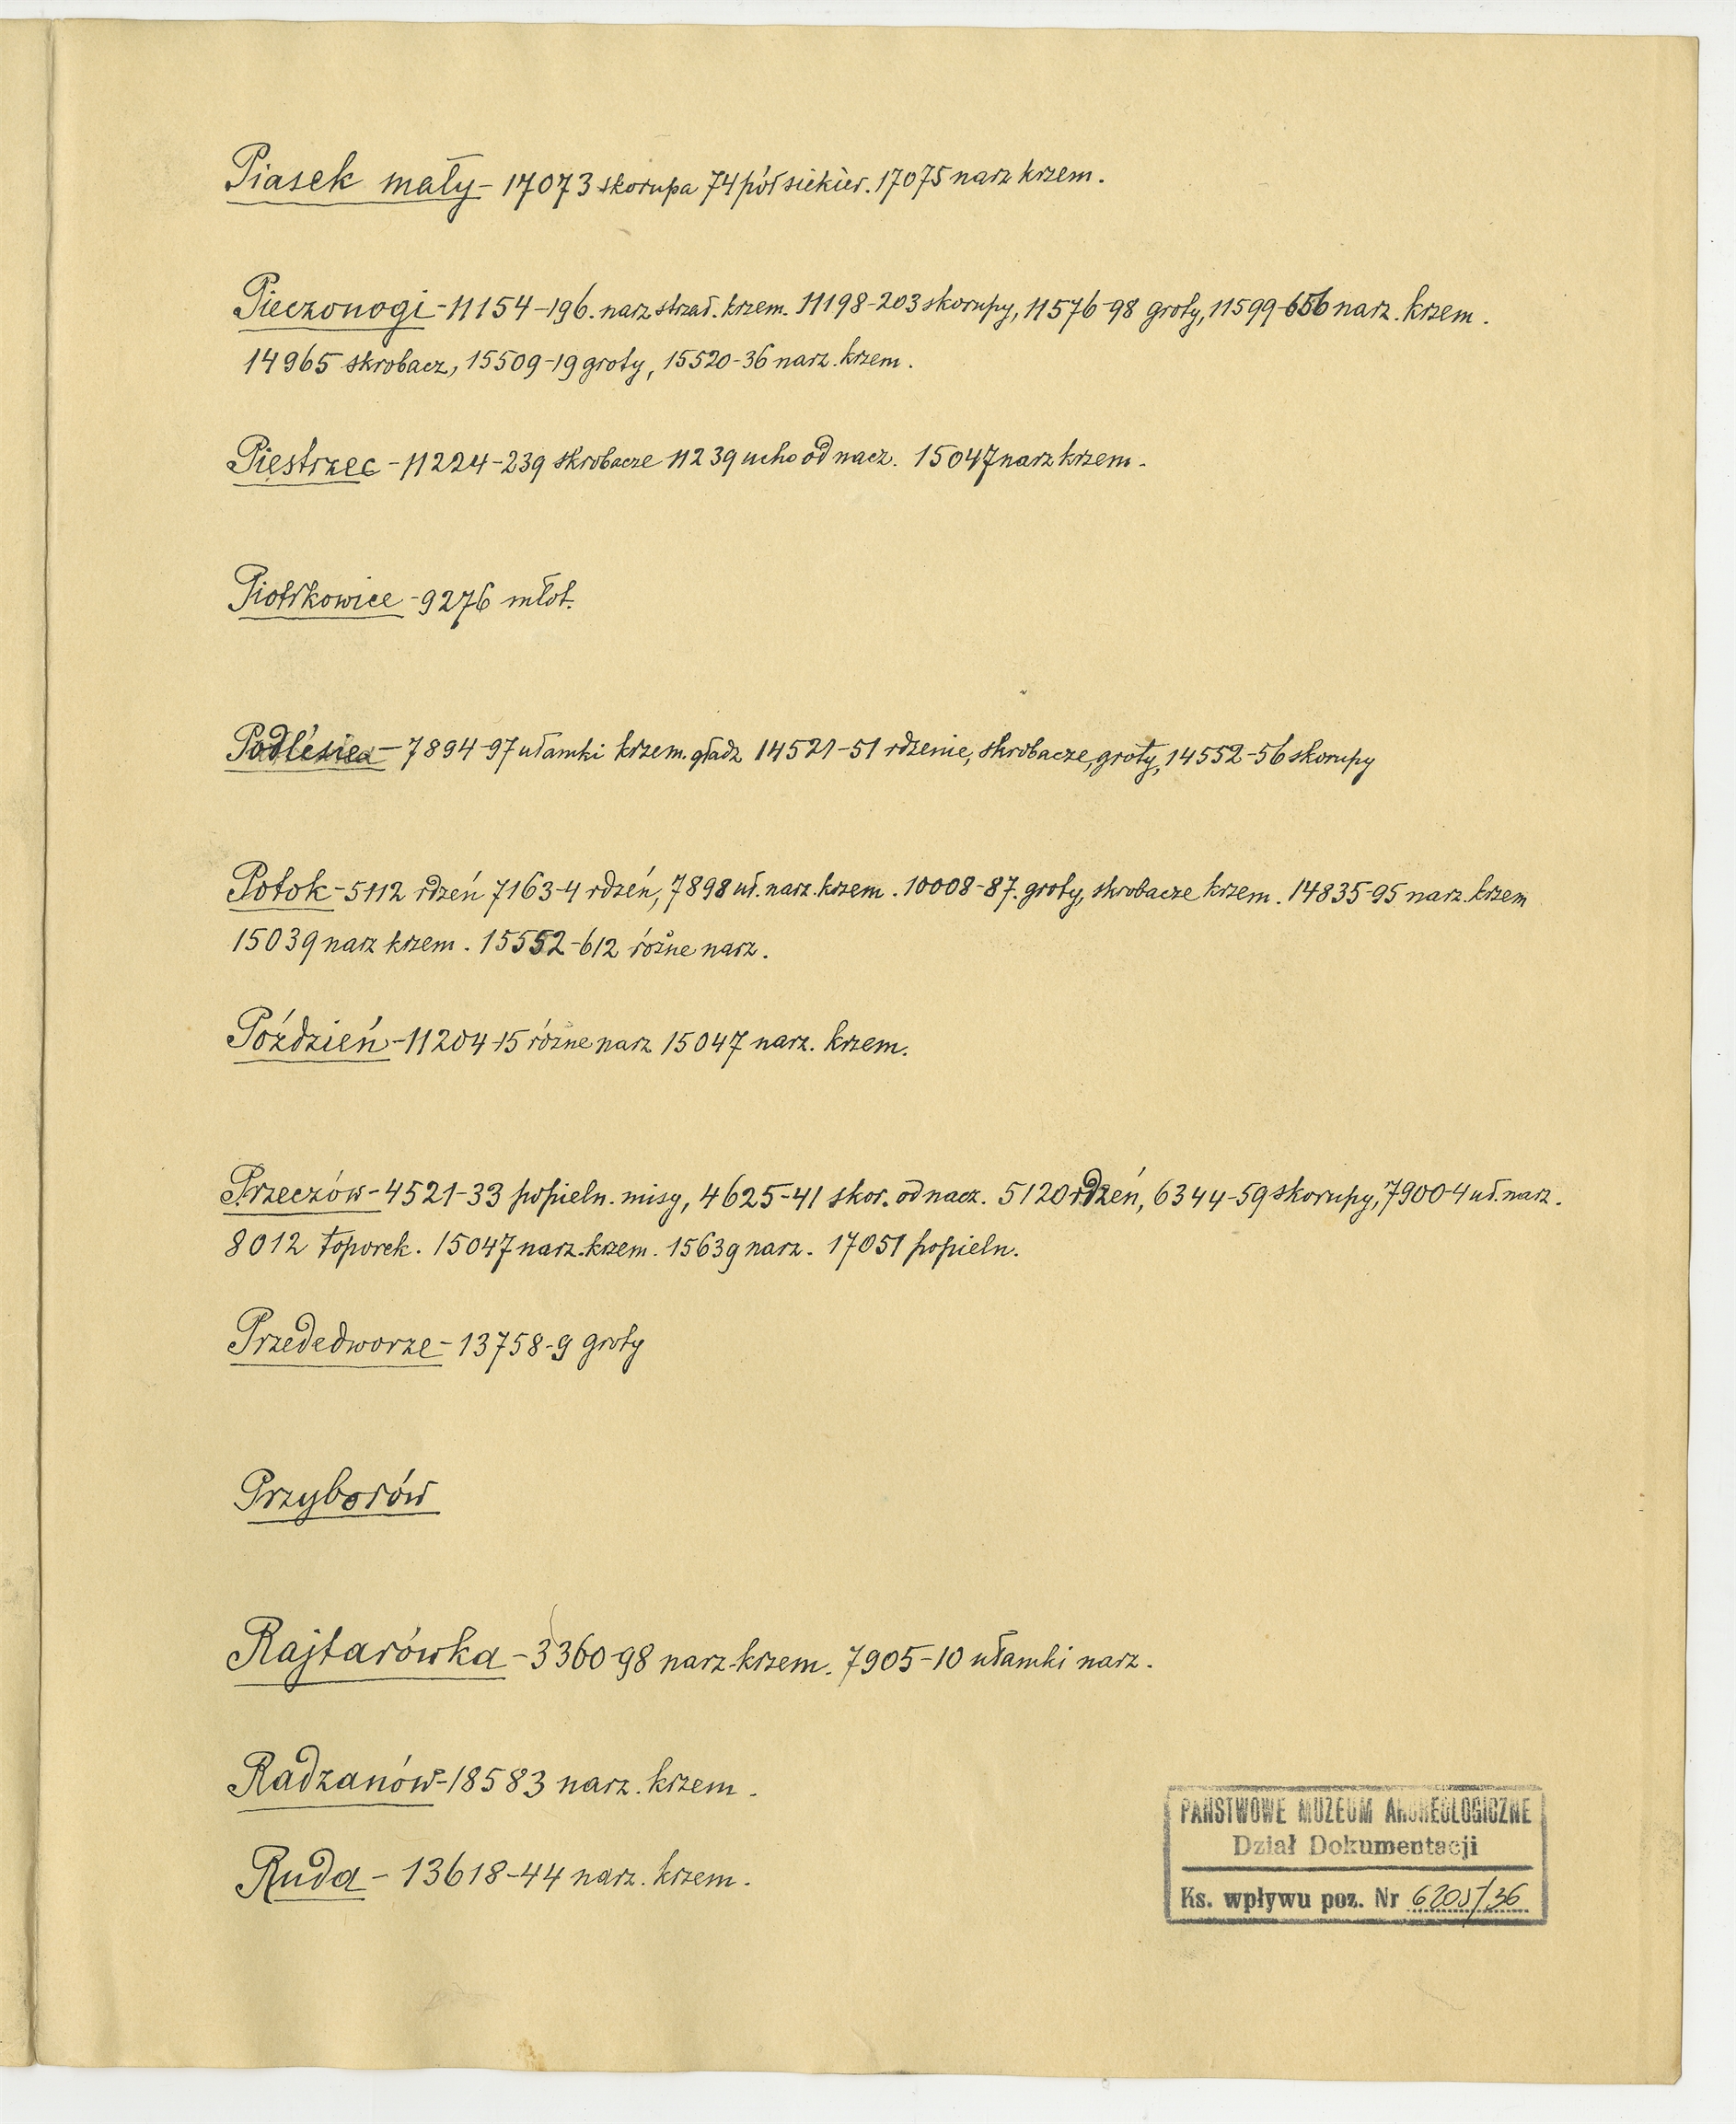 Piasek mały - 17073 skorupa 74 pół siekier. 17075 narz krzem.
Pieczonogi - 11154-196. narz strzał. krzem. 11198-203 skorupy, 11576-98 groty, 11599-656 narz. krzem.
14965 skrobacz, 15509-19 groty, 15520-36 narz. krzem.
Piestrzec - 11224-239 skrobacze 11239 ucho od nacz. 15047 narz krzem.
Piotrkowice - 9276 młot.
Podlesie - 7894-97 ułamki krzem. gładz 14521-51 rdzenie, skrobacze, groty, 14552-56 skorupy
Potok - 5112 rdzeń 7163-4 rdzeń, 7898 uł. narz. krzem. 10008-87. groty, skrobacze krzem. 14835-95 narz. krzem
15039 narz krzem. 15552-612 różne narz.
Póździeń - 11204-15 różne narz 15047 narz. krzem.
Przeczów - 4521-33 popieln. misy, 4625-41 skor. od nacz. 5120 rdzeń, 6344-59 skorupy, 7900-4 uł. narz.
8012 toporek. 15047 narz. krzem. 15639 narz. 17051 popieln.
Przededworze - 13758-9 groty
Przyborów
Rajtarówka - 3360-98 narz. krzem. 7905-10 ułamki narz.
Radzanów - 18583 narz. krzem.
Ruda - 13618-44 narz. krzem.
PAŃSTWOWE MUZEUM ARCHEOLOGICZNE
Dział Dokumentacji
Ks. wpływu poz. Nr 6205/36